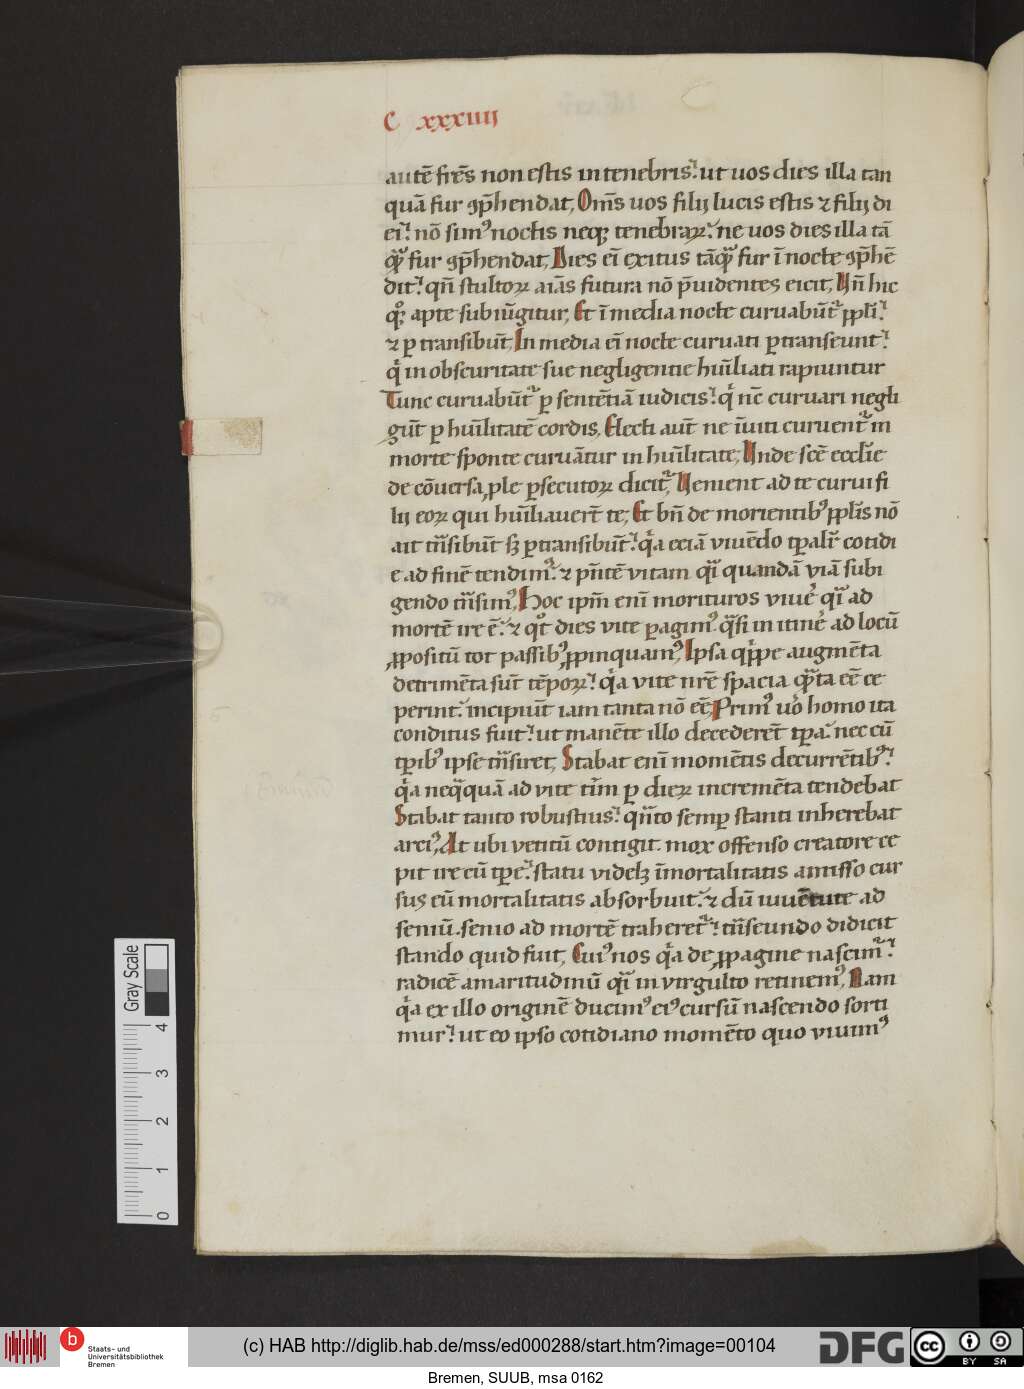 C xxxiiij
autē frēs non estis in tenebris. ut uos dies illa tan
quā fur ꝯp̄hendat. Om̄s uos filij lucis estis ⁊ filij di
ei. nō simꝰ noctis neqꝫ tenebraꝝ. ne uos dies illa tā
fur ꝯp̄hendat. Dies ei̅ exitus fur ī nocte ꝯp̄hē
dit. qn̄ stultoꝝ aīas futura nō p̄uidentes eicit. hic
apte subiūgitur. Et ī media nocte curuabūt᷑ ppl̄i.
⁊ ꝑtransibūt. In media ei̅ nocte curuati ꝑtranseunt.
qͥ in obscuritate sue negligentie hūiliati rapiuntur
Tunc curuabūt᷑ ꝑ sentētiā iudicis. qͥ nc̄ curuari negli
gūt ꝑ hūilitatē cordis. Electi aūt ne īuiti curuent᷑ in
morte sponte curuātur in hūilitate. Unde scē ecclīe
de cōuersa ꝓle ꝑsecutoꝝ dicit᷑. Uenient ad te curui fi
lij eoꝝ qui hūiliauert̄ te. Et bn̄ de morientibꝰ ppl̄is nō
ait trāsibūt sꝫ ꝑtransibūt. qͣa eciā viuēdo tꝑalit᷑ cotidi
e ad finē tendimꝰ. ⁊ pn̄tē vitam qͣi quandā viā subi
gendo trāsimꝰ. Hoc ip̄m enī morituros viuē qͣi ad
mortē ire ē. ⁊ qͦt dies vite ꝑagimꝰ qͣsi in itinē ad locū
ꝓpositū tot passibꝰ ꝓpinquamꝰ. Ipsa qͥppe augmēta
detrimēta sūt tēpoꝝ. qͣa vite nr̄e spacia qͣta eē ce
perint. incipiūt iam tanta nō eē. Primꝰ uͦo homo ita
conditus fuit. ut manēte illo decederēt tꝑa. nec cū
tꝑibꝰ ipse trāsiret. Stabat enī momētis decurrētibꝰ.
qͣa neqͣquā ad vite tīm ꝑ dieꝝ incremēta tendebat
Stabat tanto robustius. qͣnto semꝑ stanti inherebat
arciꝰ. At ubi vetitū contigit. mox offenso creatore ce
pit ire cū tꝑe. statu videlꝫ īmortalitatis amisso cur
sus eū mortalitatis absorbuit. ⁊ dū iuuētute ad
seniū. senio ad mortē traheret᷑. trāseundo didicit
stando quid fuit. Cuiꝰ nos qͣa de ꝓpagine nascimꝰ.
radicē amaritudinū qͣi in virgulto retinemꝰ. Nam
qͣa ex illo originē ducimꝰ eiꝰ cursū nascendo sorti
mur. ut eo ipso cotidiano momēto quo viuimꝰ
Gray Scale
4
3
2
1
0
b
Staats- und
Universitätsbibliothek
Bremen
(c) HAB http://diglib.hab.de/mss/ed000288/start.htm?image=00104
DFG
cc
BY SA
Bremen, SUUB, msa 0162